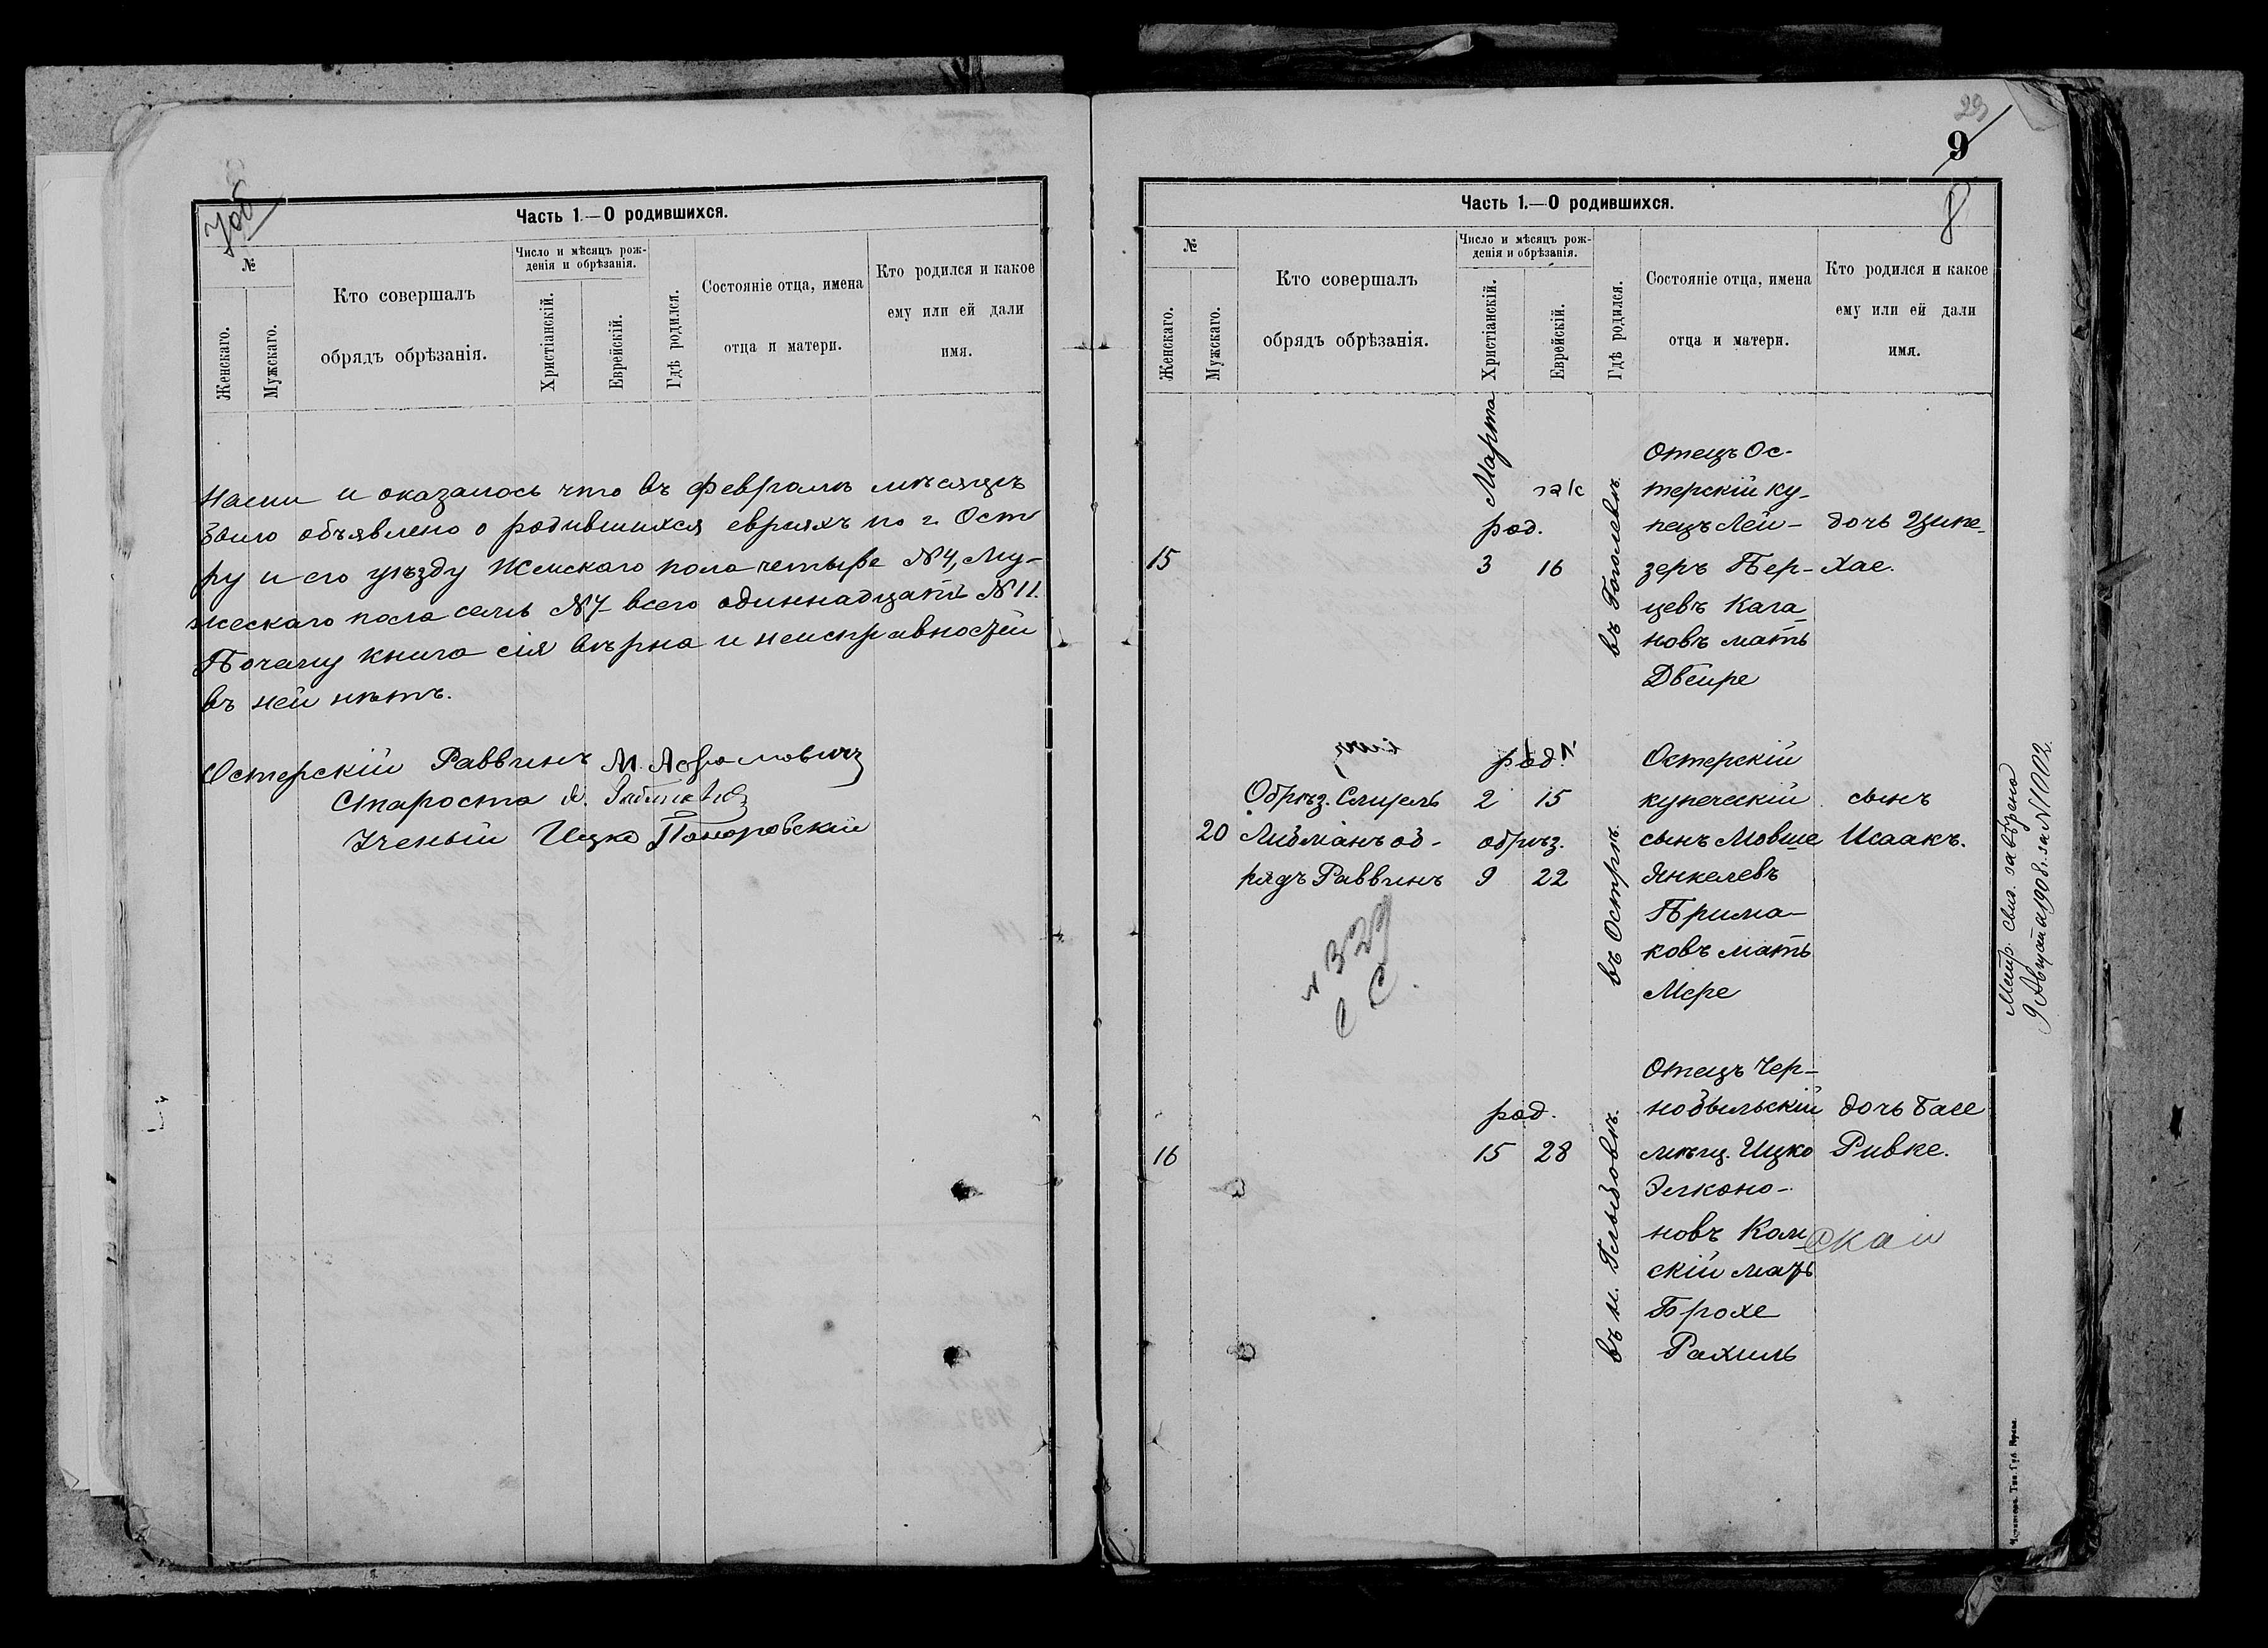 7об
Часть 1.—О родившихся.
№
Женскаго.
Мужскаго.
Кто совершалъ
обрядъ обрѣзанія.
Число и мѣсяцъ рож-
денія и обрѣзанія.
Христіанскій.
Еврейскій.
Гдѣ родился.
Состояніе отца, имена
отца и матери.
Кто родился и какое
ему или ей дали
имя.
и оказалось что въ Февралѣ мѣсяцѣ
было объявлено о родившихся евреяхъ по г. Осте
ру и его уѣзду Женскаго пола четыре №4, Му-
жескаго пола семь №7 всего одиннадцать №11.
Почему книга сія вѣрна и неисправностей
въ ней нѣтъ.
Остерскій Раввинъ М. Абрамовичъ
Староста
Ученый Ицко
29
9
8
Часть 1.—О родившихся.
№
Женскаго.
Мужскаго.
Кто совершалъ
обрядъ обрѣзанія.
Число и мѣсяцъ рож-
денія и обрѣзанія.
Христіанскій.
Еврейскій.
Гдѣ родился.
Состояніе отца, имена
отца и матери.
Кто родился и какое
ему или ей дали
имя.
Марта
15
род.
3 16
въ Гоголевѣ.
Отецъ Ос-
терскій ку-
пецъ Лей-
зеръ Пер-
цевъ Кага-
новъ мать
Двейре
дочь Ципе-
Хае.
20
Обрѣз. Смуель
Либманъ об-
рядъ Раввинъ
род.
2 15
обрѣз.
9 22
въ Острѣ.
Остерскій
купеческій
сынъ Мовше
Янкелевъ
Прима-
ковъ мать
Мере
сынъ
Исаакъ.
№ 329
С С.
Метр. свид. завѣрено
9 Августа 1908 г. за №1002.
16
род.
15 28
въ м. Гльбовѣ.
Отецъ Чер-
нобыльскій
мѣщ. Ицко
Элконо-
новъ Кам
скій мать
Брохе
Рахиль
дочь Басе
Ривке.
ская